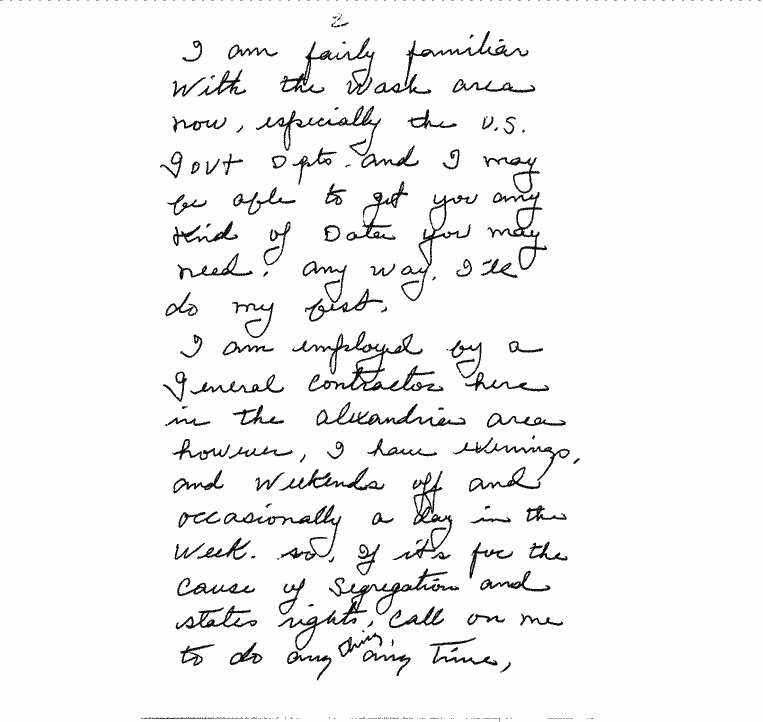 2
I am fairly familiar
With the Wash area
now, especially the U.S.
Govt Dpts. and I may
be able to get you any
Kind of Data you may
need. any way. I'll
do my best.
I am employed by a
General Contractor here
in the alexandria area
however, I have evenings,
and Weekends off and
occasionally a day in the
Week. so, if it's for the
Cause of Segregation and
states rights, Call on me
to do any thing, any Time,